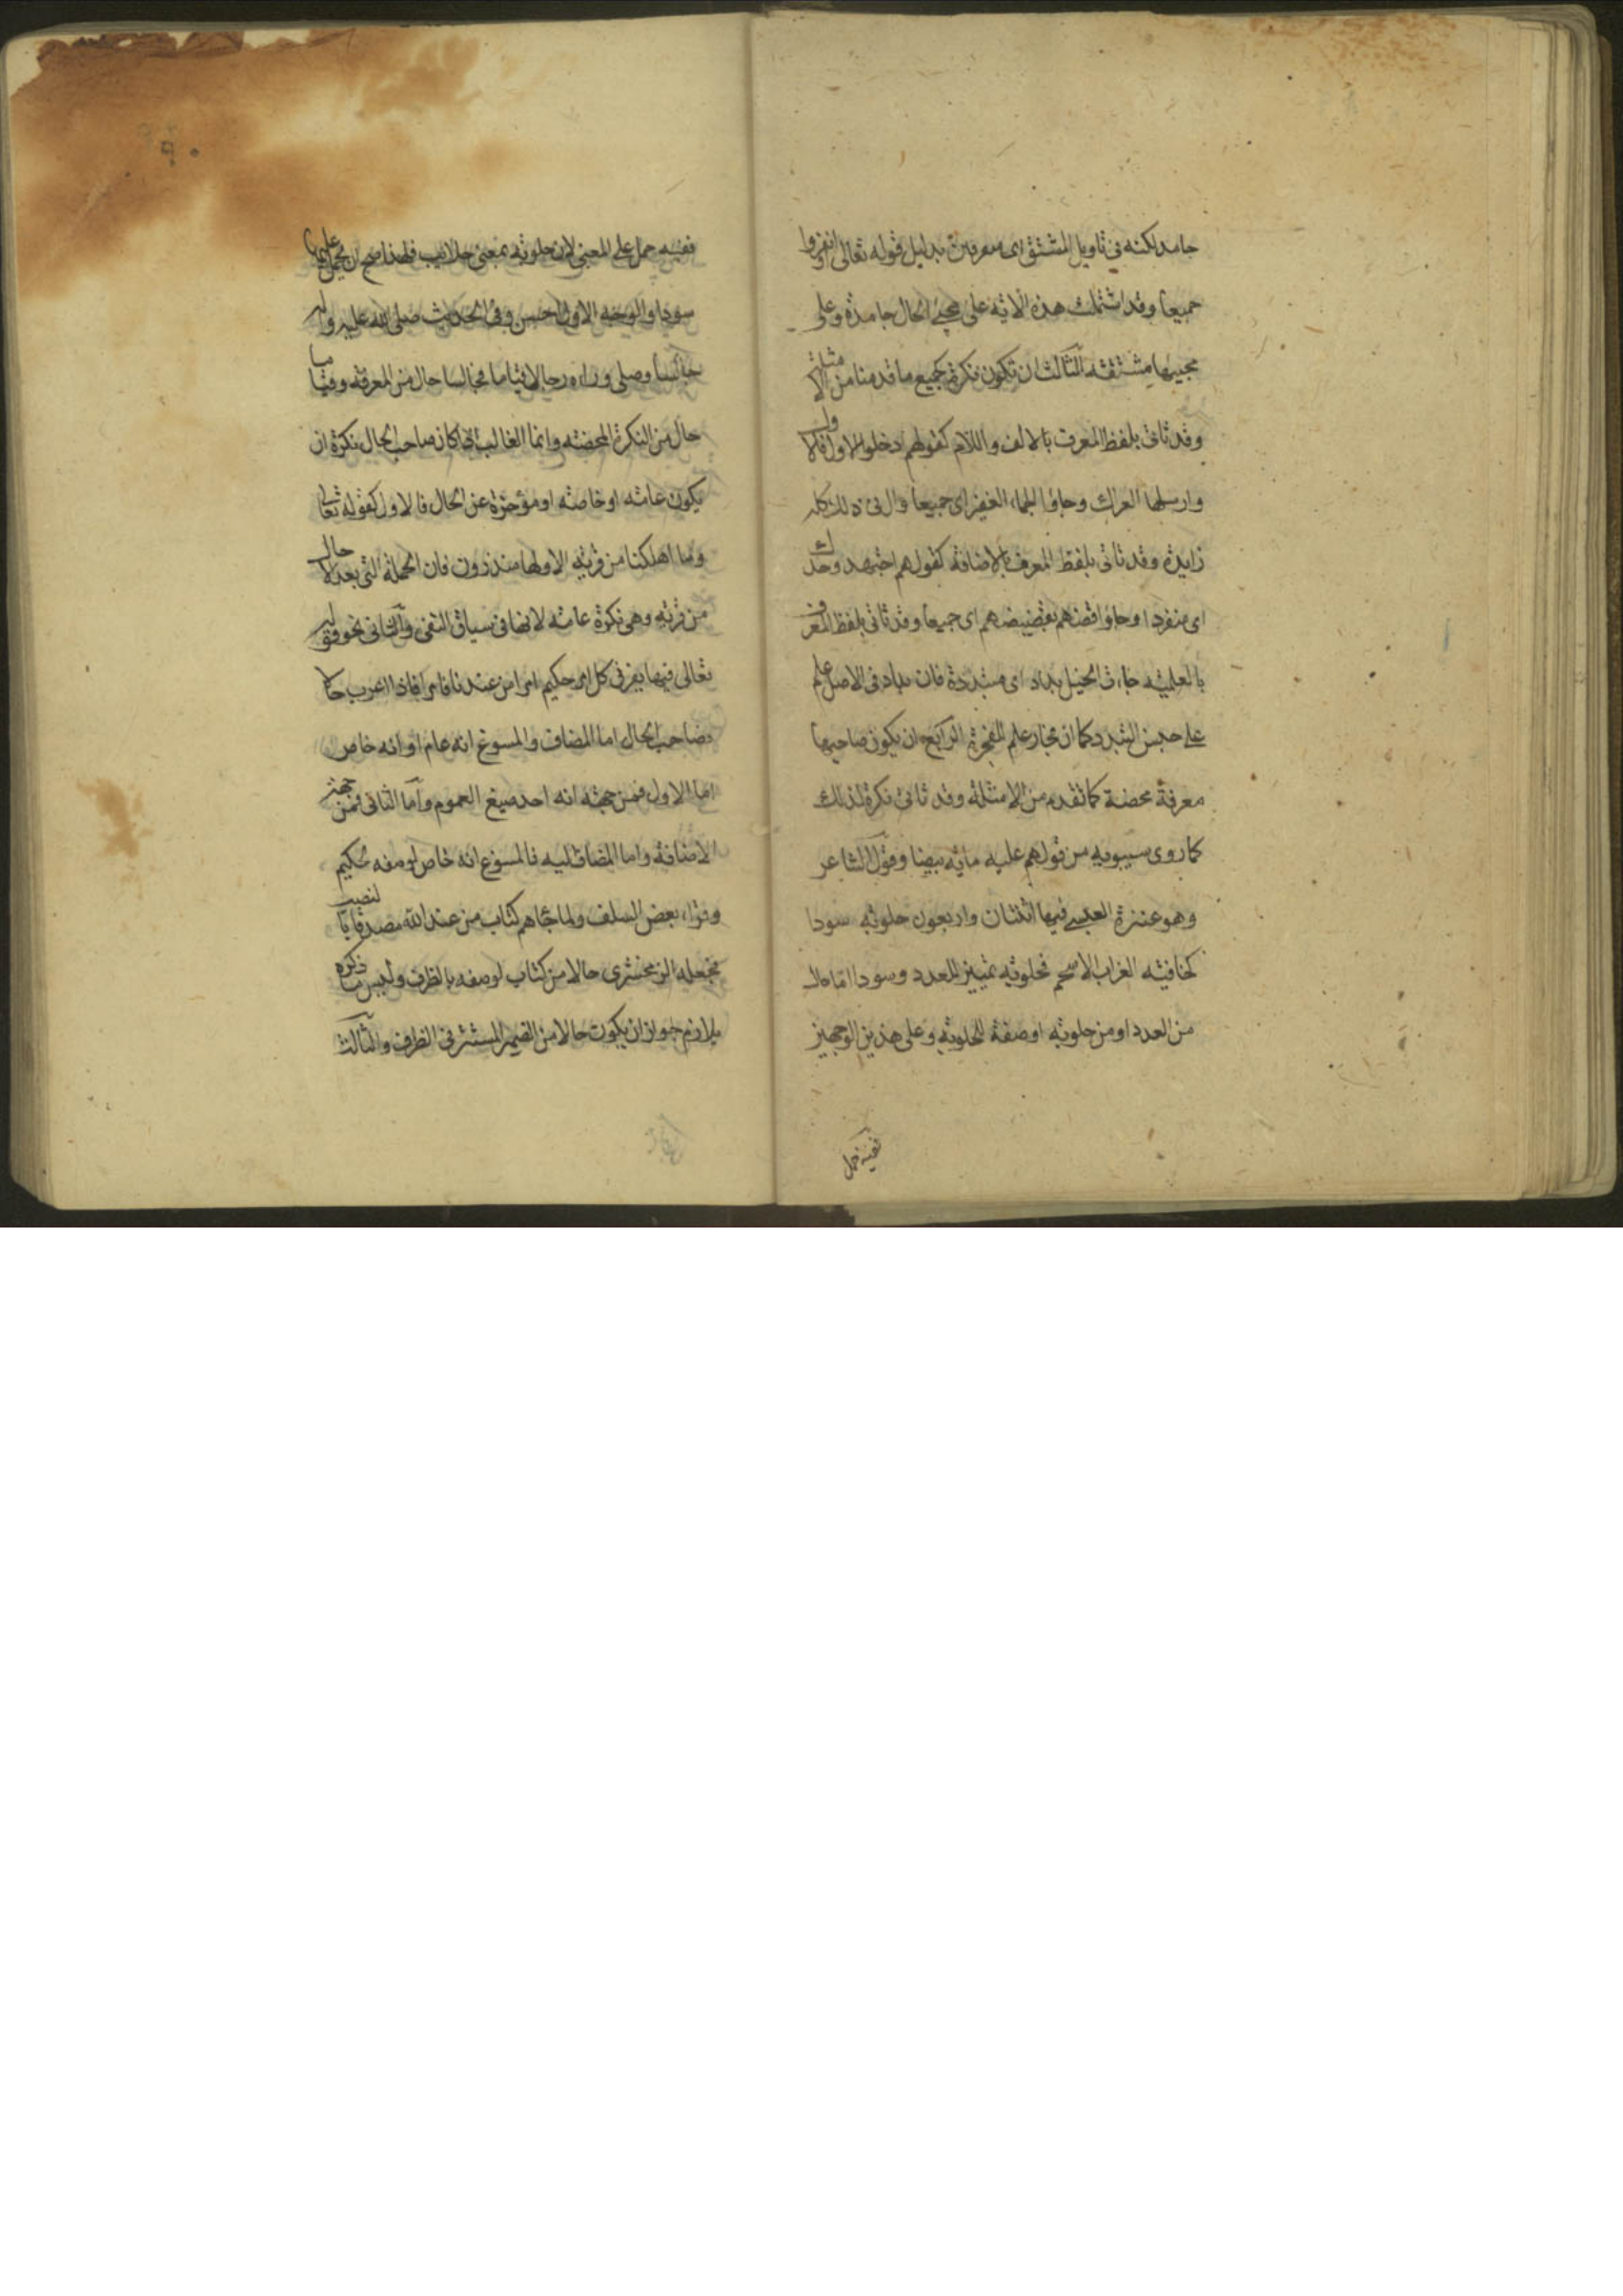 جامد لكنه في تاويل المشتق اى متفرقين بدليل قوله تعالى او انفروا
جميعا وقد اشتملت هذه الاية على مجئ الحال جامدة وعلى
مجيئها مشتقه الثالث ان تكون نكرة كجميع ما قدمنا من الامثلة
وقد تاتى بلفظ المعرف بالالف واللام كقولهم ادخلوا الاول فالاول
وارسلها العراك وجاؤا الجماء الغفير اى جميعا وال فى ذلك كله
زايدة وقد تاتى بلفظ المعرف بالاضافة كقولهم اجتهد وحدك
اى منفردا وجاؤا قضهم بقضيضهم اى جميعا وقد تاتى بلفظ المعرف
بالعلمية جاءت الخيل بداد اى متبددة فان بداد فى الاصل علم
على جنس التبدد كما ان فجار علم للفجرة الرابع ان يكون صاحبها
معرفة محضة كما تقدم من الامثلة وقد تاتى نكرة لذلك
كما روى سيبويه من قولهم عليه مايه بيضا وقول الشاعر
وهو عنترة العبسي فيها اثنتان واربعون حلوبة سودا
كخافية الغراب الاسحم فحلوبة تمييز للعدد وسودا اما حال
من العدد او من حلوبة او صفة لحلوبة وعلى هذين الوجهين
ففيه حمل
ففيه حمل على المعنى لان حلوبة بمعنى حلايب فلهذا صح ان يحمل عليها
سودا والوجه الاول احسن وفى الحديث صلى الله عليه وسلم
جالسا وصلى وراءه رجال قياما فجالسا حال من المعرفة وقياما
حال من النكرة المحضة وانما الغالب اذا كان صاحب الحال نكرة ان
يكون عامة او خاصة او مؤخرة عن الحال فالاول كقوله تعالى
وما اهلكنا من قرية الا ولها منذرون فان الجملة التى بعد الا حال
من قرية وهى نكرة عامة لانها فى سياق النفى والثانى نحو قوله
تعالى فيها يفرق كل امر حكيم امرا من عندنا فامرا اذا اعرب حالا
فصاحب الحال اما المضاف والمسوغ انه عام او انه خاص
اما الاول فمن جهة انه احد صيغ العموم واما الثانى فمن جهة
الاضافة واما المضاف اليه فالمسوغ انه خاص لوصفه بحكيم
وقراء بعض السلف ولما جاهم كتاب من عند الله مصدقا بالنصب
فجعله الزمخشرى حالا من كتاب لوصفه بالظرف وليس ما ذكره
بلازم جواز ان يكون حالا من الضمير المستتر فى الظرف والثالث